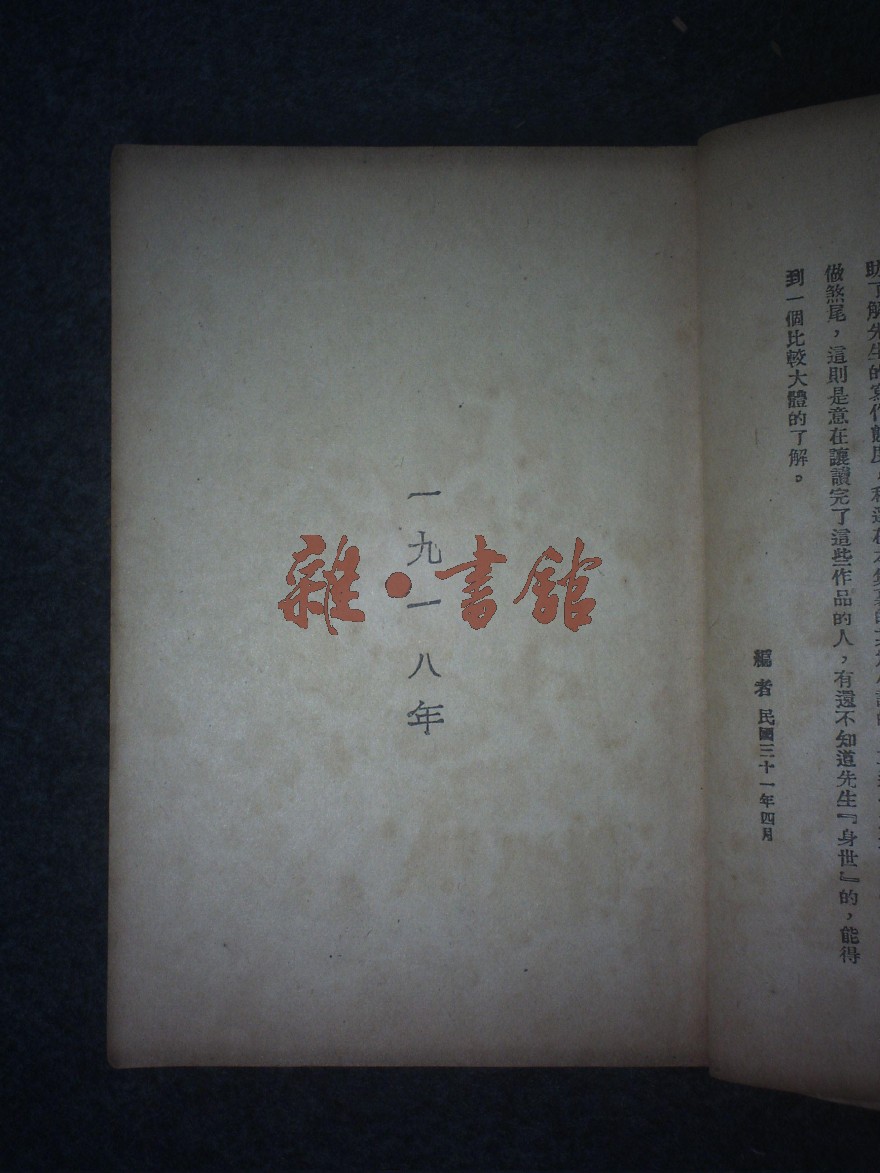 做煞尾，這則是意在讓讀完了這些作品的人，有還不知道先生『身世』的，能得
到一個比較大體的了解。
編者 民國三十一年四月
一九一八年
雜·書館